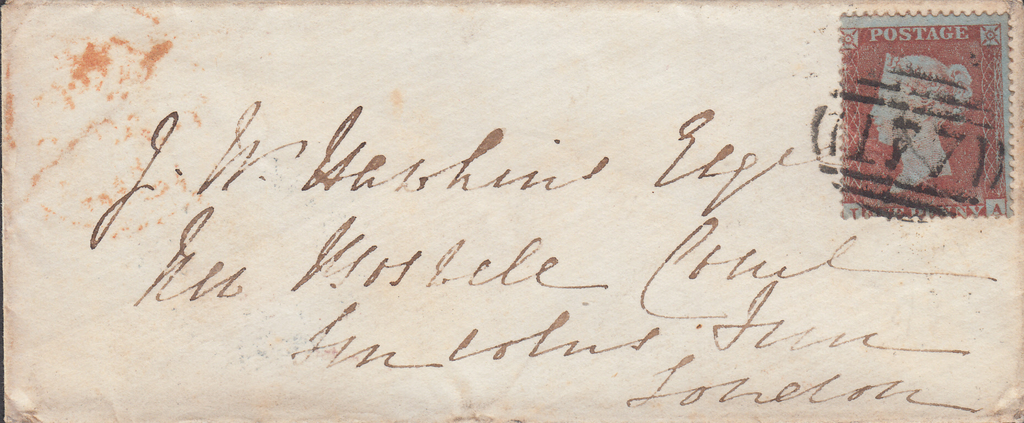 POSTAGE
J. W. Hawkins Esqr
New Boswell Court
Lincolns Inn
London